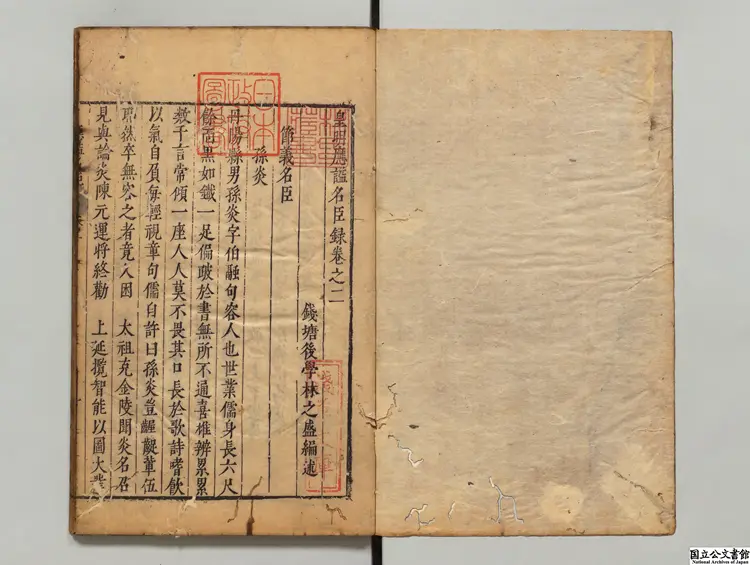 皇明應謚名臣録卷之二
錢塘後學林之盛編述
節義名臣
孫炎
丹陽縣男孫炎字伯融句容人也世業儒身長六尺
餘面黑如鐵一足偏跛於書無所不通喜雄辨累累
數千言常傾一座人人莫不畏其口長於歌詩嗜飲
以氣自負每輕視章句儒自許曰孫炎豈齷齪輩伍
耶然卒無容之者竟入困 太祖克金陵聞炎名召
見與論炎陳元運將終勸 上延攬智能以圖大業
日本
政府
圖書
國立公文書館
National Archives of Japan